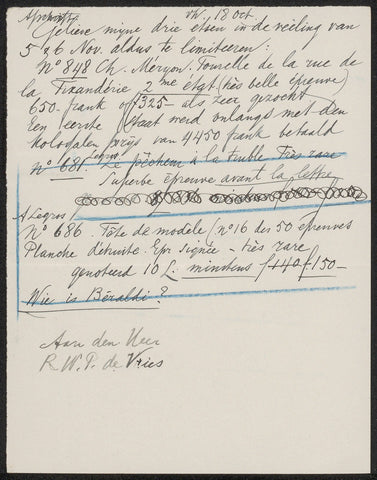 Afschrift tW. 18 Oct.
Gelieve mijne drie etsen in de veiling van
5 & 6 Nov. aldus te limiteeren:
No 848 Ch. Meryon: Tourelle de la rue de
la Tixanderie 2me état (très belle épreuve)
650.- frank of f325- als zeer gezocht
Een eerste staat werd onlangs met den
kolossalen prijs van 4450 frank betaald
No 681. Le pêcheur à la truble Très rare
Superbe épreuve avant la lettre
A Legros
No 686. Tête de modèle (no 16 des 50 épreuves
Planche détruite. Epr signée - très rare
genoteerd 10 £. minstens f140 f150-
Wie is Béraldi?
Aan den Heer
R. W. P. de Vries